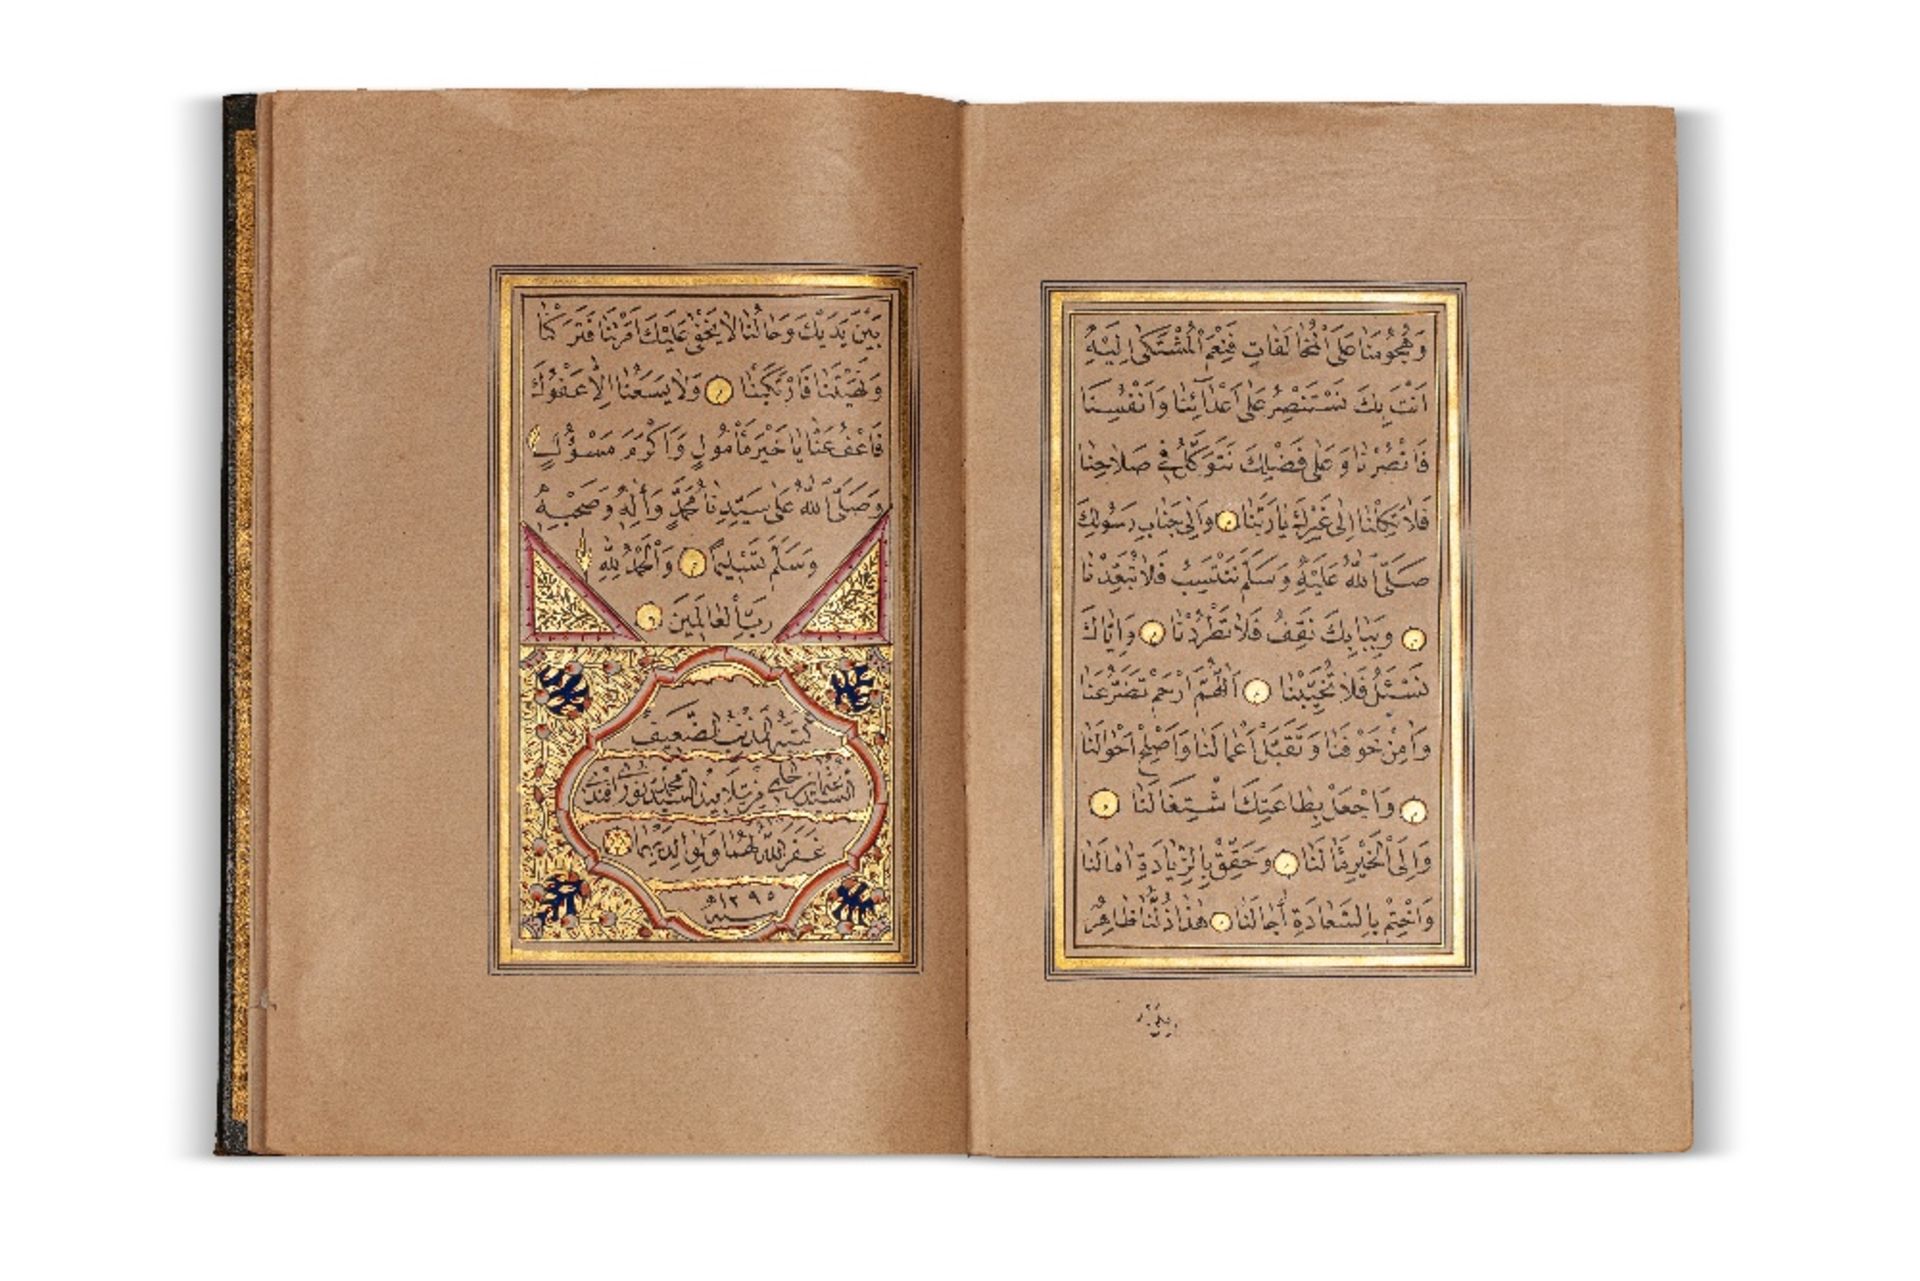 وَهُجُومَنَا عَلَى الْمُخَالَفَاتِ فَنِعْمَ الْمُشْتَكٰى اِلَيْهِ
اَنْتَ بِكَ نَسْتَنْصِرُ عَلٰى اَعْدَآئِنَا وَاَنْفُسِنَا
فَانْصُرْنَا وَعَلٰى فَضْلِكَ نَتَوَكَّلُ فِي صَلَاحِنَا
فَلَا تَكِلْنَا اِلٰى غَيْرِكَ يَا رَبَّنَا وَاِلٰى جَنَابِ رَسُولِكَ
صَلَّى اللهُ عَلَيْهِ وَسَلَّمَ نَنْتَسِبُ فَلَا تُبَعِّدْنَا
وَبِبَابِكَ نَقِفُ فَلَا تَطْرُدْنَا وَاِيَّاكَ
نَسْئَلُ فَلَا تُخَيِّبْنَا اَللّٰهُمَّ ارْحَمْ تَضَرُّعَنَا
وَاٰمِنْ خَوْفَنَا وَتَقَبَّلْ اَعْمَالَنَا وَاَصْلِحْ اَحْوَالَنَا
وَاجْعَلْ بِطَاعَتِكَ اشْتِغَالَنَا
وَاِلَى الْخَيْرِ مَاٰلَنَا وَحَقِّقْ بِالزِّيَادَةِ اٰمَالَنَا
وَاخْتِمْ بِالسَّعَادَةِ اٰجَالَنَا هٰذَا ذُلُّنَا ظَاهِرٌ
بَيْنَ
بَيْنَ يَدَيْكَ وَحَالُنَا لَا يَخْفٰى عَلَيْكَ اَمَرْتَنَا فَتَرَكْنَا
وَنَهَيْتَنَا فَارْتَكَبْنَا وَلَا يَسَعُنَا اِلَّا عَفْوُكَ
فَاعْفُ عَنَّا يَا خَيْرَ مَأْمُولٍ وَاَكْرَمَ مَسْؤُلٍ
وَصَلَّى اللهُ عَلٰى سَيِّدِنَا مُحَمَّدٍ وَاٰلِهِ وَصَحْبِهِ
وَسَلَّمَ تَسْلِيمًا وَالْحَمْدُ لِلّٰهِ
رَبِّ الْعَالَمِينَ
كتبه المذنب الضعيف
السيد عثمان حلمي من تلاميذ السيد محمد نوري افندي
غفر الله لهما ولوالديهما
سنة ١٢٩٥